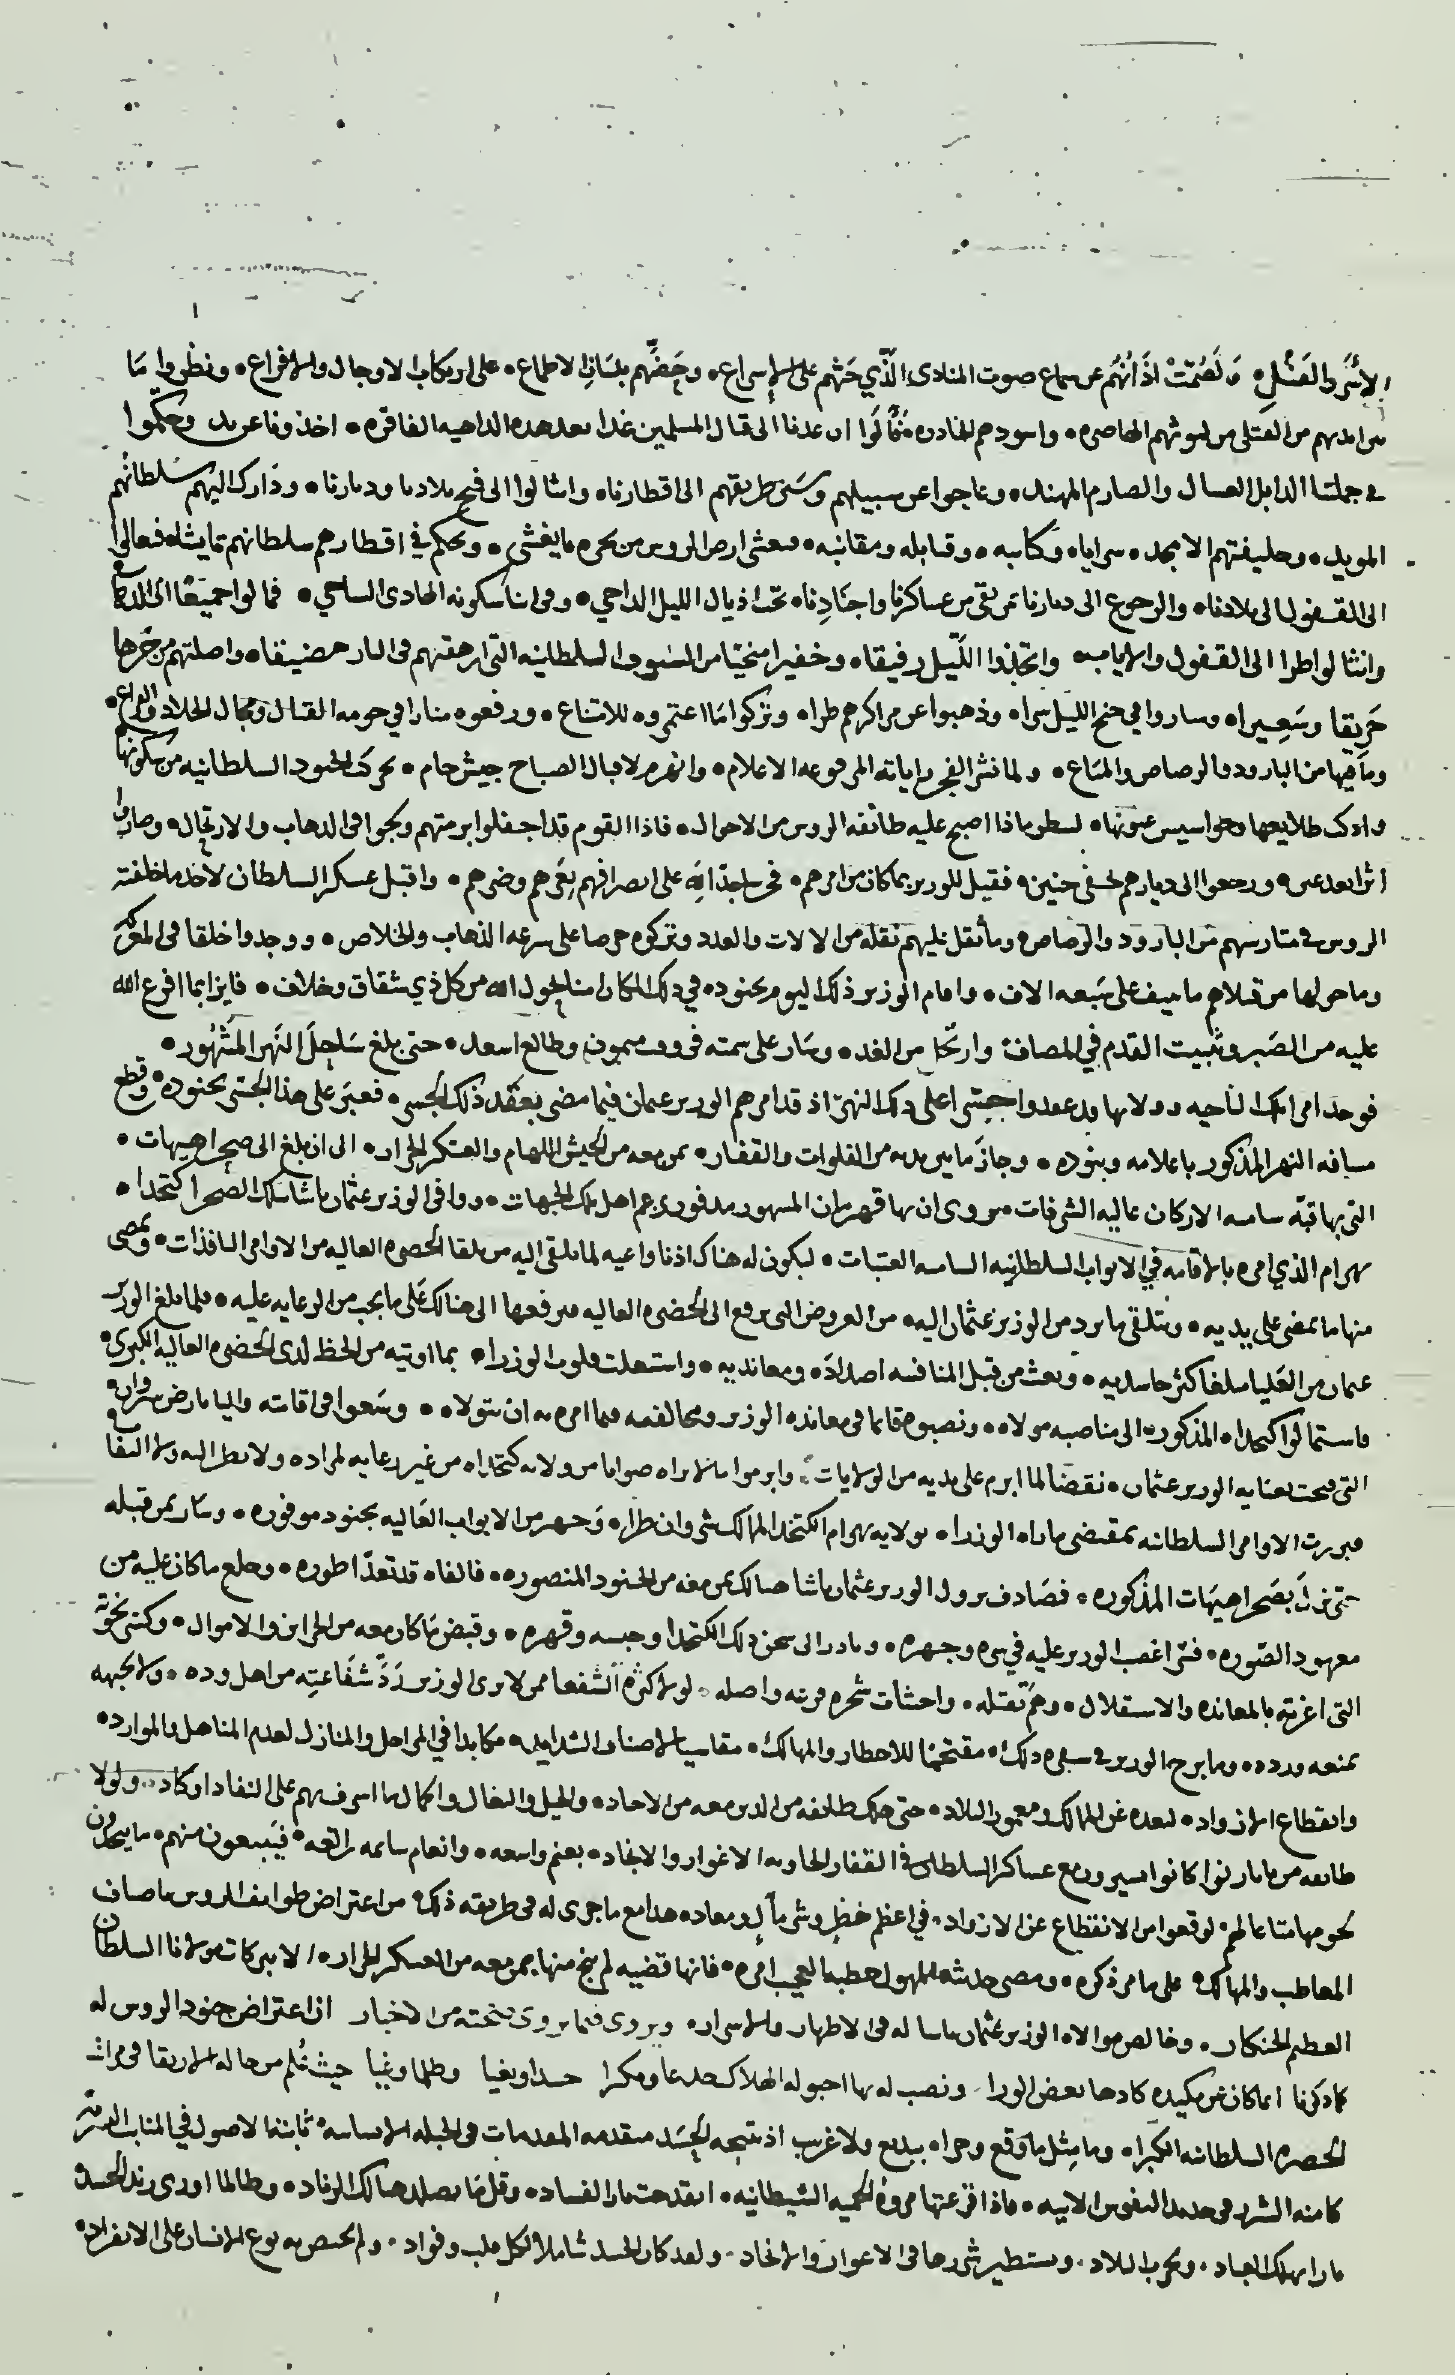 الأسر والقتل • ولصمتت اذانهم عن سماع صوت المنادى الذي حثهم على الاسراع • وحضهم بلسان الاطماع • على ارتكاب الاوجال والافزاع • ونظروا ما
من القتلى من ليوثهم الهاصره • واسودهم الخادره • قالوا ان عدنا الى قتال المسلمين غدا بعد هذه الداهيه الفاقره • اخذونا عن يد وحكموا
في جملتنا الذابل العسال والصارم المهند • وعاجوا عن سبيلهم وسنن طريقهم الى اقطارنا • وانثالوا الى فتح بلادنا وديارنا • ودارك اليهم سلطانهم
المويد • وخليفتهم الامجد • سراياه وكتايبه • وقنابله ومقانبه • فيغشى ارض الروس من بحره ما يغشى • ويحكم في اقطارهم سلطانهم بما يشا • فتعالوا
الى القفول الى بلادنا • والرجوع الى ديارنا بمن بقى من عساكرنا واجنادنا • تحت اذيال الليل الداجي • وفي اثنا سكونه الهادى الساجي • فمالوا جميعا الى
وانثالوا طرا الى القفول والاياب • واتخذوا الليل رفيقا • وخفيرا منجيا من السيوف السلطانيه التى ارهقتهم في النار مضيقا • واصلتهم من حرها
حريقا وسعيرا • وساروا في جنح الليل سرا • وذهبوا عن مراكزهم طرا • وتركوا ما اعتمروه للامتناع • ورفعوه منارا في حومه القتال ومجال الجلاد والقراع •
وما فيها من البارود والرصاص والمتاع • ولما نشر الفجر راياته المرفوعه الاعلام • وانهزم لاقبال الصباح جيش حام • تحركت الجنود السلطانيه من سكونها
طلايعها وجواسيس عيونها • لينظروا ماذا اصبح عليه طائفه الروس من الاحوال • فاذا القوم قد اجفلوا برمتهم ولجوا في الذهاب والارتحال • وصاروا
اثرا بعد عين • ورجعوا الى ديارهم بخفي حنين • فقيل للوزير بما كان من امرهم • فخر ساجدا لله على انصرافهم بعرهم وضرهم • واقبل عسكر السلطان لاخذ ما خلفته
الروس في متارسهم من البارود والرصاص • وما ثقل عليهم نقله من الالات والعدد وتركوه حرصا على سرعه الذهاب والخلاص • ووجدوا خلقا في المعركه
وما حولها من قتلاهم ما ينيف على سبعه الاف • واقام الوزير ذلك اليوم بجنوده في ذلك المكان امنا بحول الله من كل ذي شقاق وخلاف • فايزا بما افرغ الله
عليه من الصبر وتثبيت القدم في المصاف • وارتحل من الغد • وسار على سمته في وقت ميمون وطالع اسعد • حتى بلغ ساحل النهر المشهور •
فوجد امرا تلك الناحيه وولاتها قد عقدوا جسرا على ذلك النهر اذ قد امرهم الوزير عثمان فيما مضى بعقد ذلك الجسر • فعبر على هذا الجسر بجنوده • وقطع
مسافه النهر المذكور باعلامه وبنوده • وجاز ما بين يديه من الفلوات والقفار • بمن معه من الجيش اللهام والعسكر الجرار • الى ان بلغ الى صحرا هيهات •
التي بها قبة ساميه الاركان عاليه الشرفات • يروى ان بها قهرمان المشهور مدفون بزعم اهل تلك الجهات • ووافى الوزير عثمان باشا بتلك الصحرا كتخدا •
بهرام الذي امره بالاقامه في الابواب السلطانيه الساميه العتبات • ليكون له هناك اذنا واعيه لما يلقى اليه من تلقا الحضره العاليه من الاوامر النافذات • ويمضى
منها ما يمضى على يديه • ويتلقى ما يرد من الوزير عثمان اليه • من العروض التى ترفع الى الحضره العاليه فيرفعها الى هنالك على ما يجب من الرعايه عليه • فلما بلغ الوزير
عثمان من العليا مبلغا كثر حاسديه • وبعث من قبل المنافسه اضداده ومعانديه • واشتعلت قلوب الوزراء بما اوتيه من الحظ لدى الحضره العاليه الكبرى •
فاستمالوا كتخداه المذكور • الى مناصبه مولاه • ونصبوه قايما في معانده الوزير ومخالفته فيما امره به ان يتولاه • وسعوا في اقامته واليا بارض شروان •
التى فتحت بعنايه الوزير عثمان • نقضا لما ابرم على يديه من الولايات • وابرموا ما لا يراه صوابا من ولايه كتخداه من غير رعايه لمراده ولا نظر اليه ولا التفات
فبرزت الاوامر السلطانيه بمقتضى ما راه الوزراء • بولايه بهرام الكتخدا لممالك شروان طرا • وجهز من الابواب العاليه بجنود موفوره • وسار بمن قبله
حتى نزل بصحرا هيهات المذكوره • فصادف نزول الوزير عثمان باشا هنالك بمن معه من الجنود المنصوره • فالفاه قد تعدا طوره • وخلع ما كان عليه من
معهود الصوره • فثرا غضب الوزير عليه في سره وجهره • وبادر الى سجن ذلك الكتخدا وحبسه وقهره • وقبض ما كان معه من الخزاين والاموال •
التى اغرته بالمعانده والاستقلال • وهم بقتله • واجتثات شجره فرعه واصله • لولا كثره الشفعا ممن لا يرى الوزير رد شفاعته من اهل وده • ولا بجبهه
بمنعه ورده • وما برح الوزير في سفره ذلك • مقتحما للاخطار والمهالك • مقاسيا لاصناف الشدايد • مكابدا في المراحل والمنازل لعدم المناهل والموارد •
وانقطاع الازواد • لبعده عن الممالك ومعمور البلاد • حتى هلك طائفه من الذين معه من الاجناد • والخيل والبغال والجمال ما اسرف بهم على النفاد او كاد • ولولا
طايفه من كانوا يسيرون مع عساكر السلطان في القفار الخاويه الاغوار والانجاد • بغنم واسعه • وانعام سايمه راتعه • فيبيعون منهم • ما يتخذون
لحومها متاعا لهم • لوقعوا من الانقطاع عن الازواد • في اعظم خطر وشر مآل ومعاد • هذا مع ما جرى له في طريقه ذلك من اعتراض طوايف الروس باصناف
المعاطب والمهالك • على ما مر ذكره • ومضى حديثه المهول خطبه العجيب امره • فانها قضيه لم ينج منها بمن معه من العسكر الجرار • الا ببركات مولانا السلطان
العظيم الخنكار • وخالص موالاه الوزير عثمان باشا له في الاظهار والاسرار • ويروى فيما يروى من الاخبار ان اعتراض جنود الروس له
كما ذكرنا انما كان عن مكيده كادها بعض الوزرا • ونصب له بها احبوله الهلاك خدعا ومكرا حسدا وبغيا وظلما وغيا حيث علم من حاله الارتقا في مراتب
الحضره السلطانيه الكبرا • وما مثل ما وقع وجرا • ببديع ولا غريب اذ نتيجه الحسد متقدمه المقدمات في الجبله الانسانيه • ثابته الاصول في المنابت
كامنه الشرر في حديد النفوس الابيه • فاذا قرعتها مروه الحميه الشيطانيه • انقدحت نار الفساد • وقل ما يصلد هنالك الزناد • وطالما اورى زند الحسد
نارا تهلك العباد • وتخرب البلاد • ويستطير شررها في الاغوار والانجاد • ولقد كان الحسد شاملا لكل قلب وفواد • ولم يختص به نوع الانسان على الانفراد •